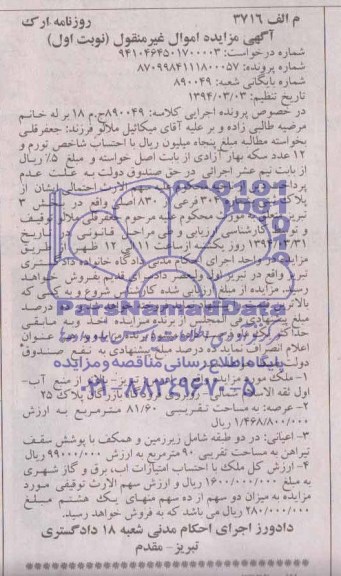 م الف ۳۷۱۶ روزنامه ارک
آگهی مزایده اموال غیرمنقول (نوبت اول)
شماره درخواست: ۹۴۱۰۴۶۴۵۰۱۷۰۰۰۰۳
شماره پرونده: ۸۷۰۹۹۸۴۱۱۱۸۰۰۰۵۷
شماره بایگانی شعبه: ۸۹۰۰۴۹
تاریخ تنظیم: ۱۳۹۴/۰۳/۰۳
در خصوص پرونده اجرایی کلاسه: ۸۹۰۰۴۹ج.م ۱۸ بر له خانم
مرضیه طالبی زاده و بر علیه آقای میکائیل ملالو فرزند: جعفرقلی
بخواسته مطالبه مبلغ پنجاه میلیون ریال با احتساب شاخص تورم و
۱۲ عدد سکه بهار آزادی از بابت اصل خواسته و مبلغ ۵٪ ریال
از بابت نیم عشر اجرائی در حق صندوق دولت به علت عدم
سهم الارث احتمالی ایشان از
فرعی از ۸۳۰ اصلی واقع در بخش ۳
تبریز متعلق به مورث محکوم علیه مرحوم جعفرقلی ملالو توقیف
کارشناسی ارزیابی و طی مراحل قانونی در تاریخ
۱۳۹۴/۳/۳۱ روز یکشنبه از ساعت ۱۱ الی ۱۲ ظهر از طریق
مزایده در واحد اجرای احکام مدنی دادگاه خانواده دادگستری
تبریز واقع در تبریز اول ولیعصر بفروش خواهد
رسید. مزایده از مبلغ ارزیابی شده کارشناسی شروع و به کسی که
درصد
مبلغ پیشنهادی فی المجلس از برنده مزایده اخذ و به مابقی
عنوان
اعلام انصراف نماید ده درصد مبلغ پیشنهادی به نفع صندوق
دولت
ParsNamadData
پایگاه اطلاع رسانی مناقصه و مزایده
۰۲۱-۸۸۳۴۹۶۷۰-۵
۱- ملک مورد مزایده از منبع آب-
اول ثقه الاسلام پلاک ۲۵
۲- عرصه: به مساحت تقریبی ۸۱/۶۰ مترمربع به ارزش
۱/۴۶۸/۸۰۰/۰۰۰ ریال
۳- اعیانی: در دو طبقه شامل زیرزمین و همکف با پوشش سقف
تیرآهن به مساحت تقریبی ۹۰ مترمربع به ارزش ۹۹۰۰۰/۰۰۰ ریال
۴- ارزش کل ملک با احتساب امتیازات آب، برق و گاز شهری
به مبلغ ۱۶۰۰/۰۰۰/۰۰۰ ریال و ارزش سهم الارث توقیفی مورد
مزایده به میزان دو سهم از ده سهم منهای یک هشتم مبلغ
۲۸۰/۰۰۰/۰۰۰ ریال می باشد که به فروش خواهد رسید.
دادورز اجرای احکام مدنی شعبه ۱۸ دادگستری
تبریز- مقدم